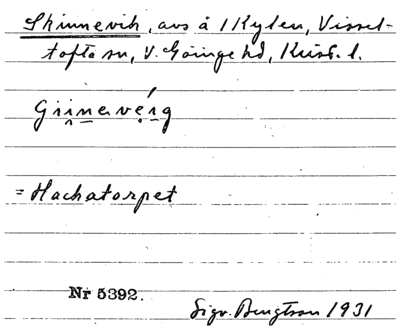 Skinnevik, avs å 1 Kylen, Vissel-
tofta sn, V. Göinge hd, Krist. l.
= Hackatorpet
Nr 5392.
Sigv. Bengtson 1931